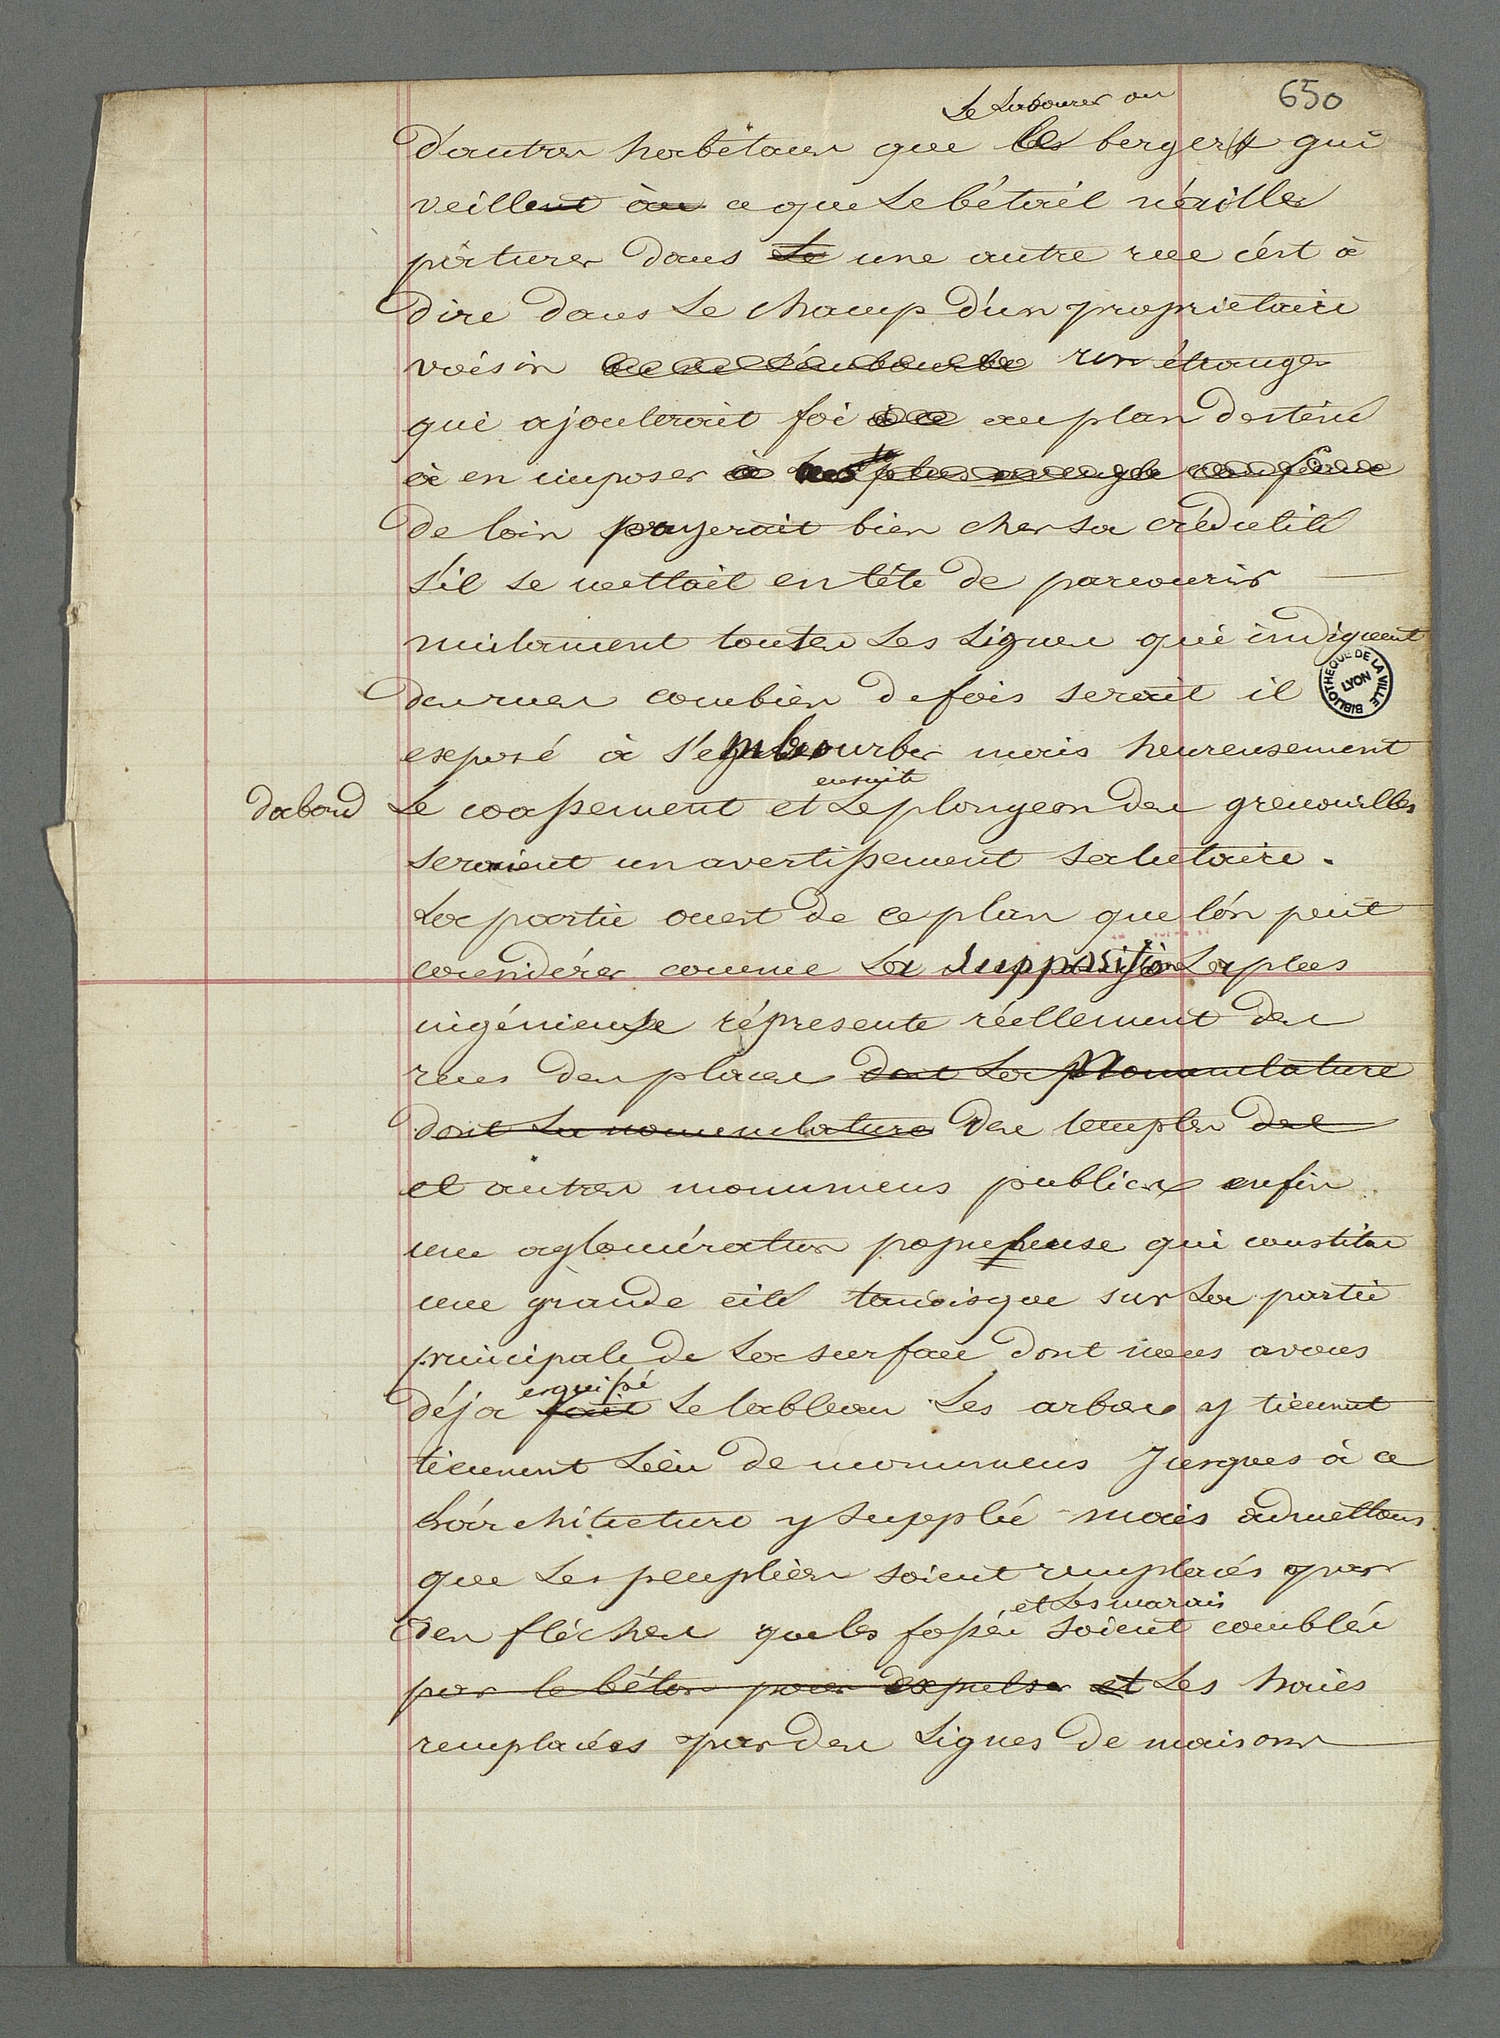 650
Le Laboureur ou
d'autres habitans que les bergers qui
veillent à ce que Le bétail n'aille
paturer dans La une autre rue c'est à
dire dans Le champ d'un proprietaire
voisin un étranger
qui ajouterait foi au plan destiné
à en imposer à
de loin payerait bien cher sa crédulité
s'il se mettait en tête de parcourir
nuitament toutes Les Lignes qui indiquent
des rues combien de fois serait il
exposé à s'embourber mais heureusement
ensuite
dabord Le coassement et Le plongeon des grenouilles
seraient un avertissement salutaire.
La partie ouest de ce plan que l'on peut
considérer comme La supposition La plus
ingénieuse réprésente réellement des
rues des places dont La Nomenclature
dont La nomenclature des temples des
et autres monumens publics enfin
une aglomération populeuse qui constitue
une grande cité tandisque sur La partie
principale de La surface dont nous avons
esquissé
déja fait Le tableau Les arbres y tiennent
tiennent Lieu de monumens Jusques à ce
L'architecture y supplée mais admettons
que Les peupliers soient remplacés par
et Les marais
des fléches que les fossés soient comblés
par le béton pour expulser et Les haies
remplacées par des Lignes de maisons
BIBLIOTHEQUE DE LA VILLE
LYON